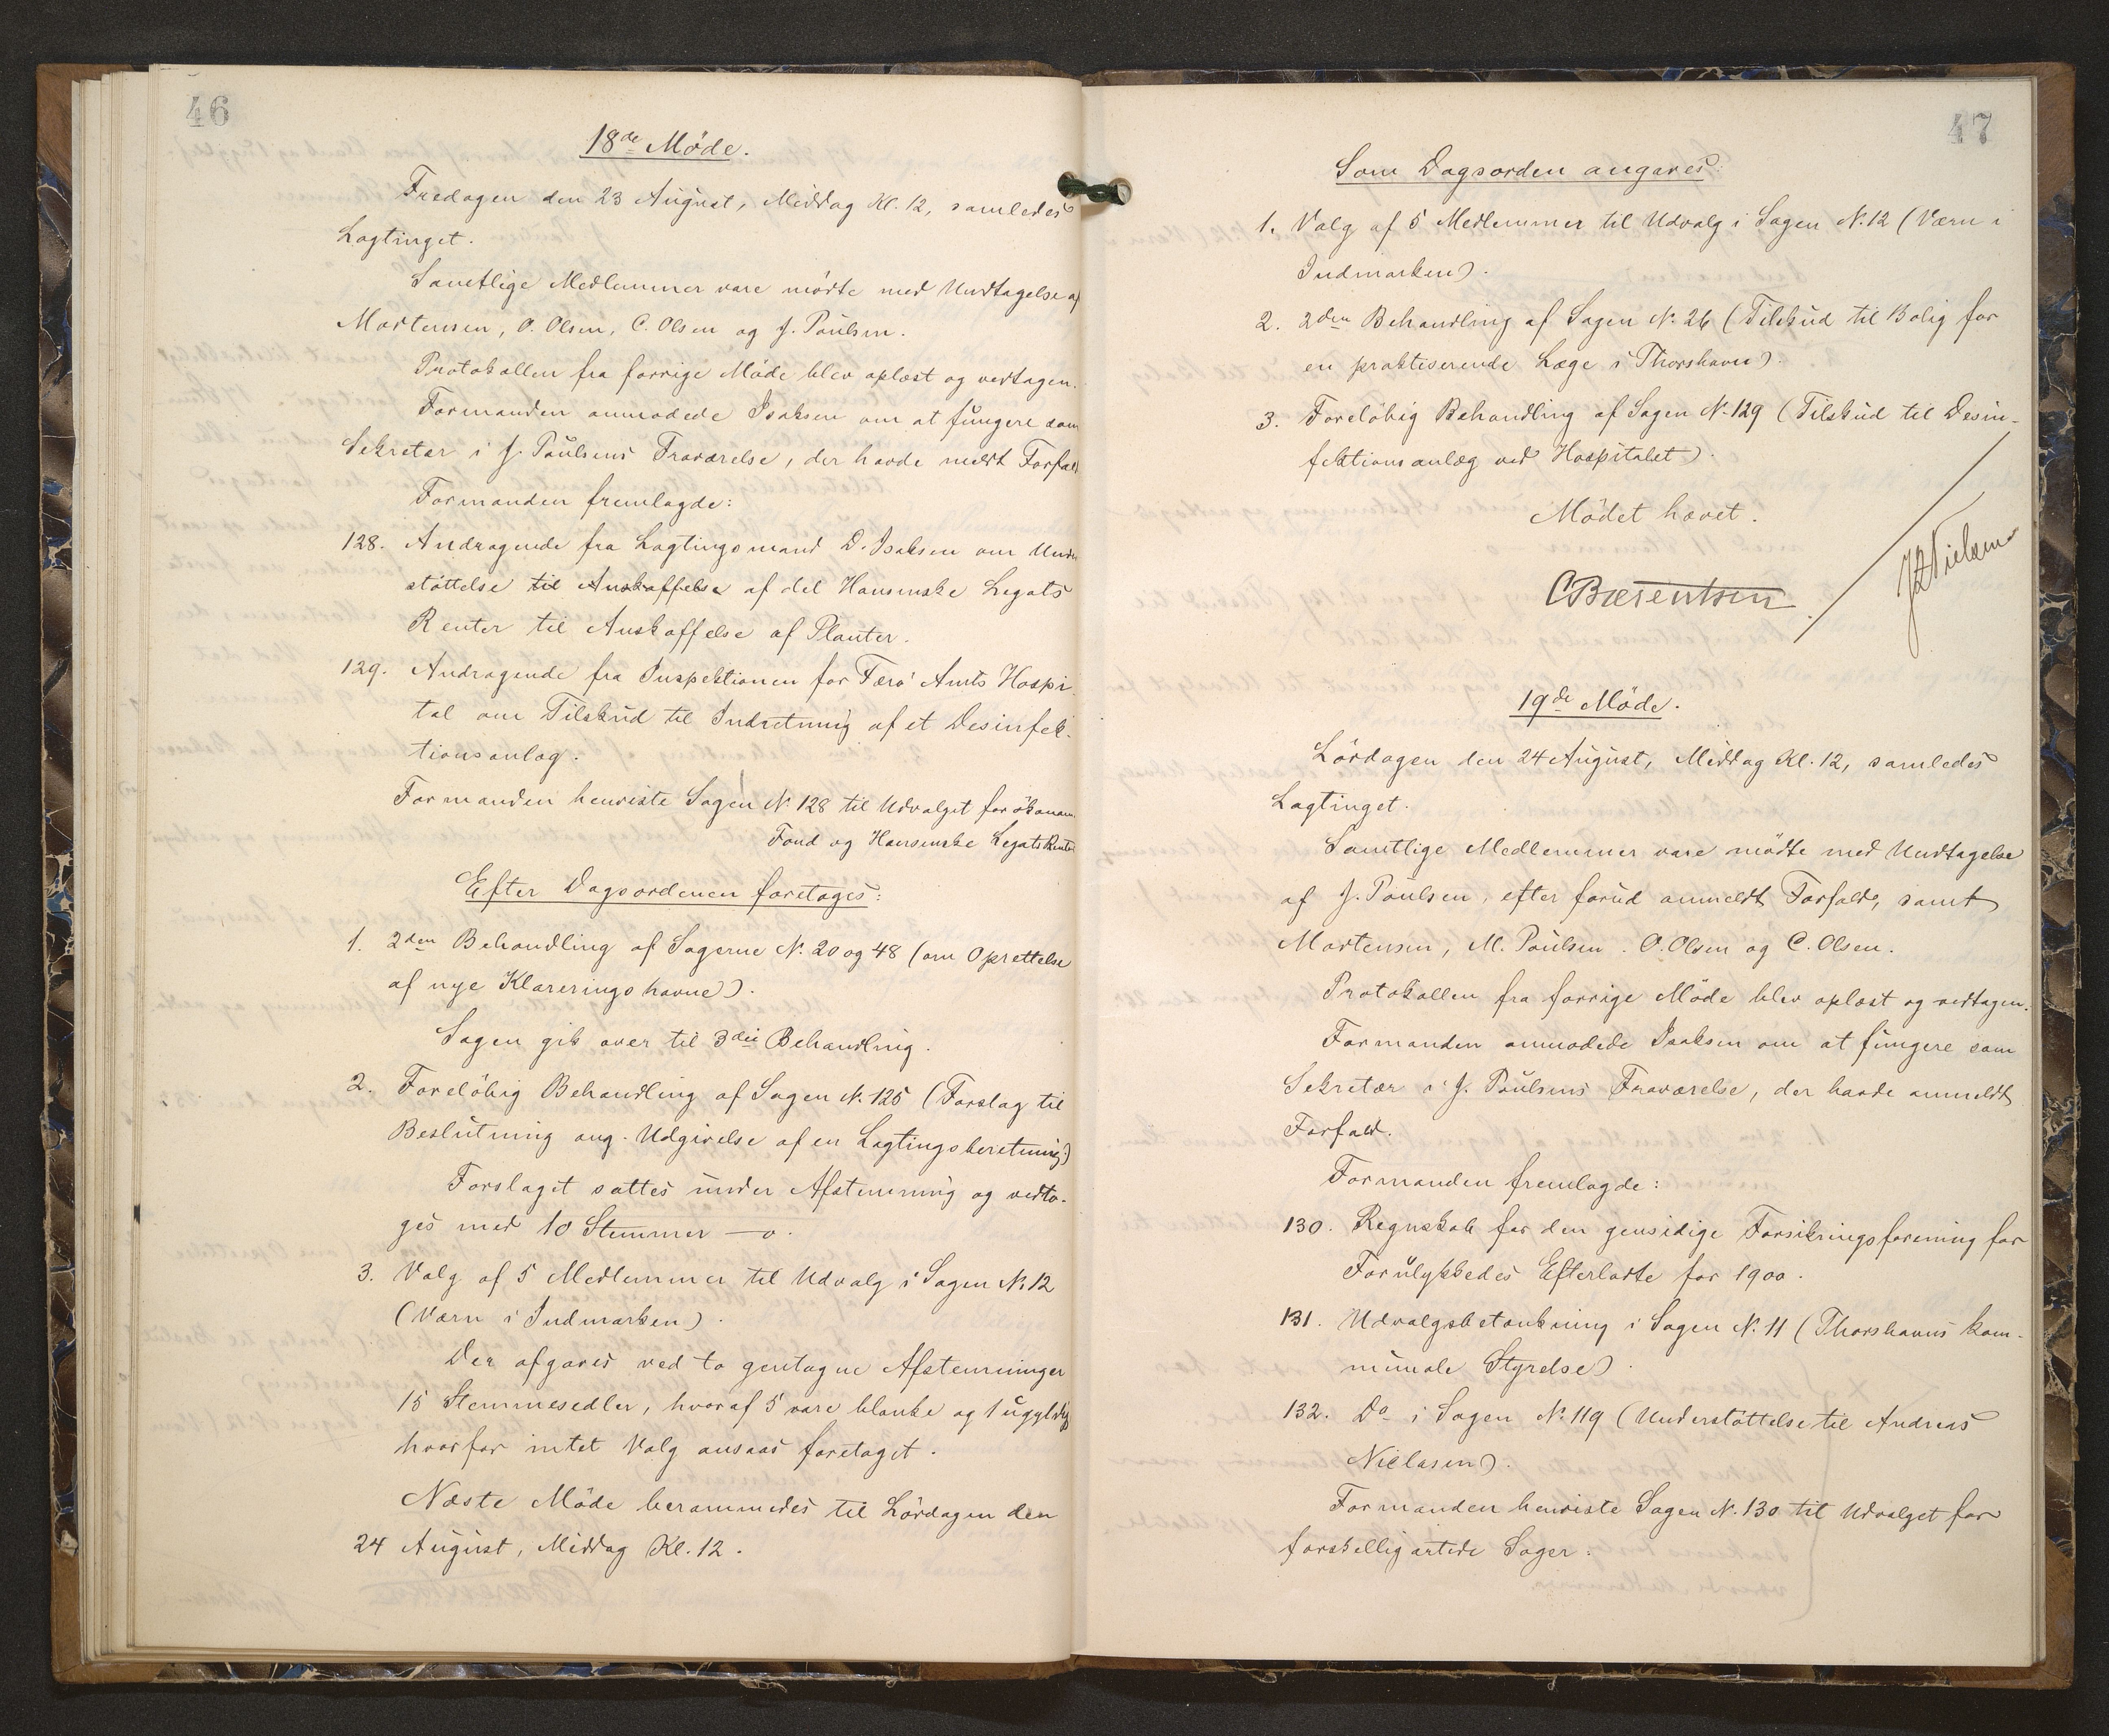 46
18de Møde.
Fredagen den 23 August, Middag Kl. 12, samledes
Lagtinget.
Samtlige Medlemmer vare mødte med Undtagelse af
Mortensen, O. Olsen, C. Olsen og J. Paulsen.
Protokollen fra forrige Møde blev oplæst og vedtagen.
Formanden anmodede Isaksen om at fungere som
Sekretær i J. Poulsens Fraværelse, der havde meldt Forfald
Formanden fremlagde:
128. Andragende fra Lagtingsmand D. Isaksen om Under
støttelse til Anskaffelse af det Hansenske Legats
Renter til Anskaffelse af Planter.
129. Andragende fra Inspektionen for Færø Amts Hospi
tal om Tilskud til Indretning af et Desinfek-
tionsanlæg.
Formanden henviste Sagen N. 128 til Udvalget for økonom.
Fond og Hansenske Legats Renter
Efter Dagsordenen foretoges:
1. 2den Behandling af Sagerne N. 20 og 48 (om Oprettelse
af nye Klareringshavne).
Sagen gik over til 3die Behandling.
2. Foreløbig Behandling af Sagen N. 125 (Forslag til
Beslutning ang. Udgivelse af en Lagtingsberetning)
Forslaget sattes under Afstemning og vedto-
ges med 10 Stemmer — 0.
3. Valg af 5 Medlemmer til Udvalg i Sagen N. 12
(Værn i Indmarken).
Der afgaves ved to gentagne Afstemninger
15 Stemmesedler, hvoraf 5 vare blanke og 1 ugyldig
hvorfor intet Valg ansaas foretaget.
Næste Møde berammedes til Lørdagen den
24 August, Middag Kl. 12.
47
Som Dagsorden angaves:
1. Valg af 5 Medlemmer til Udvalg i Sagen N. 12 (Værn i
Indmarken).
2. 2den Behandling af Sagen N. 26 (Tilskud til Bolig for
en praktiserende Læge i Thorshavn).
3. Foreløbig Behandling af Sagen N. 129 (Tilskud til Desin-
fektionsanlæg ved Hospitalet).
Mødet hævet.
CBærentsen
Nielsen
19de Møde.
Lørdagen den 24 August, Middag Kl. 12, samledes
Lagtinget.
Samtlige Medlemmer vare mødte med Undtagelse
af J. Poulsen, efter forud anmeldt Forfald, samt
Mortensen, M. Poulsen. O. Olsen og C. Olsen.
Protokollen fra forrige Møde blev oplæst og vedtagen.
Formanden anmodede Isaksen om at fungere som
Sekretær i J. Poulsens Fraværelse, der havde anmeldt
Forfald.
Formanden fremlagde:
130. Regnskab for den gensidige Forsikringsforening for
Forulykkedes Efterladte for 1900.
131. Udvalgsbetænkning i Sagen N. 11 (Thorshavns kom-
munale Styrelse).
132. Do i Sagen N. 119 (Understøttelse til Andreas
Niclasen).
Formanden henviste Sagen N. 130 til Udvalget for
forskelligartede Sager.